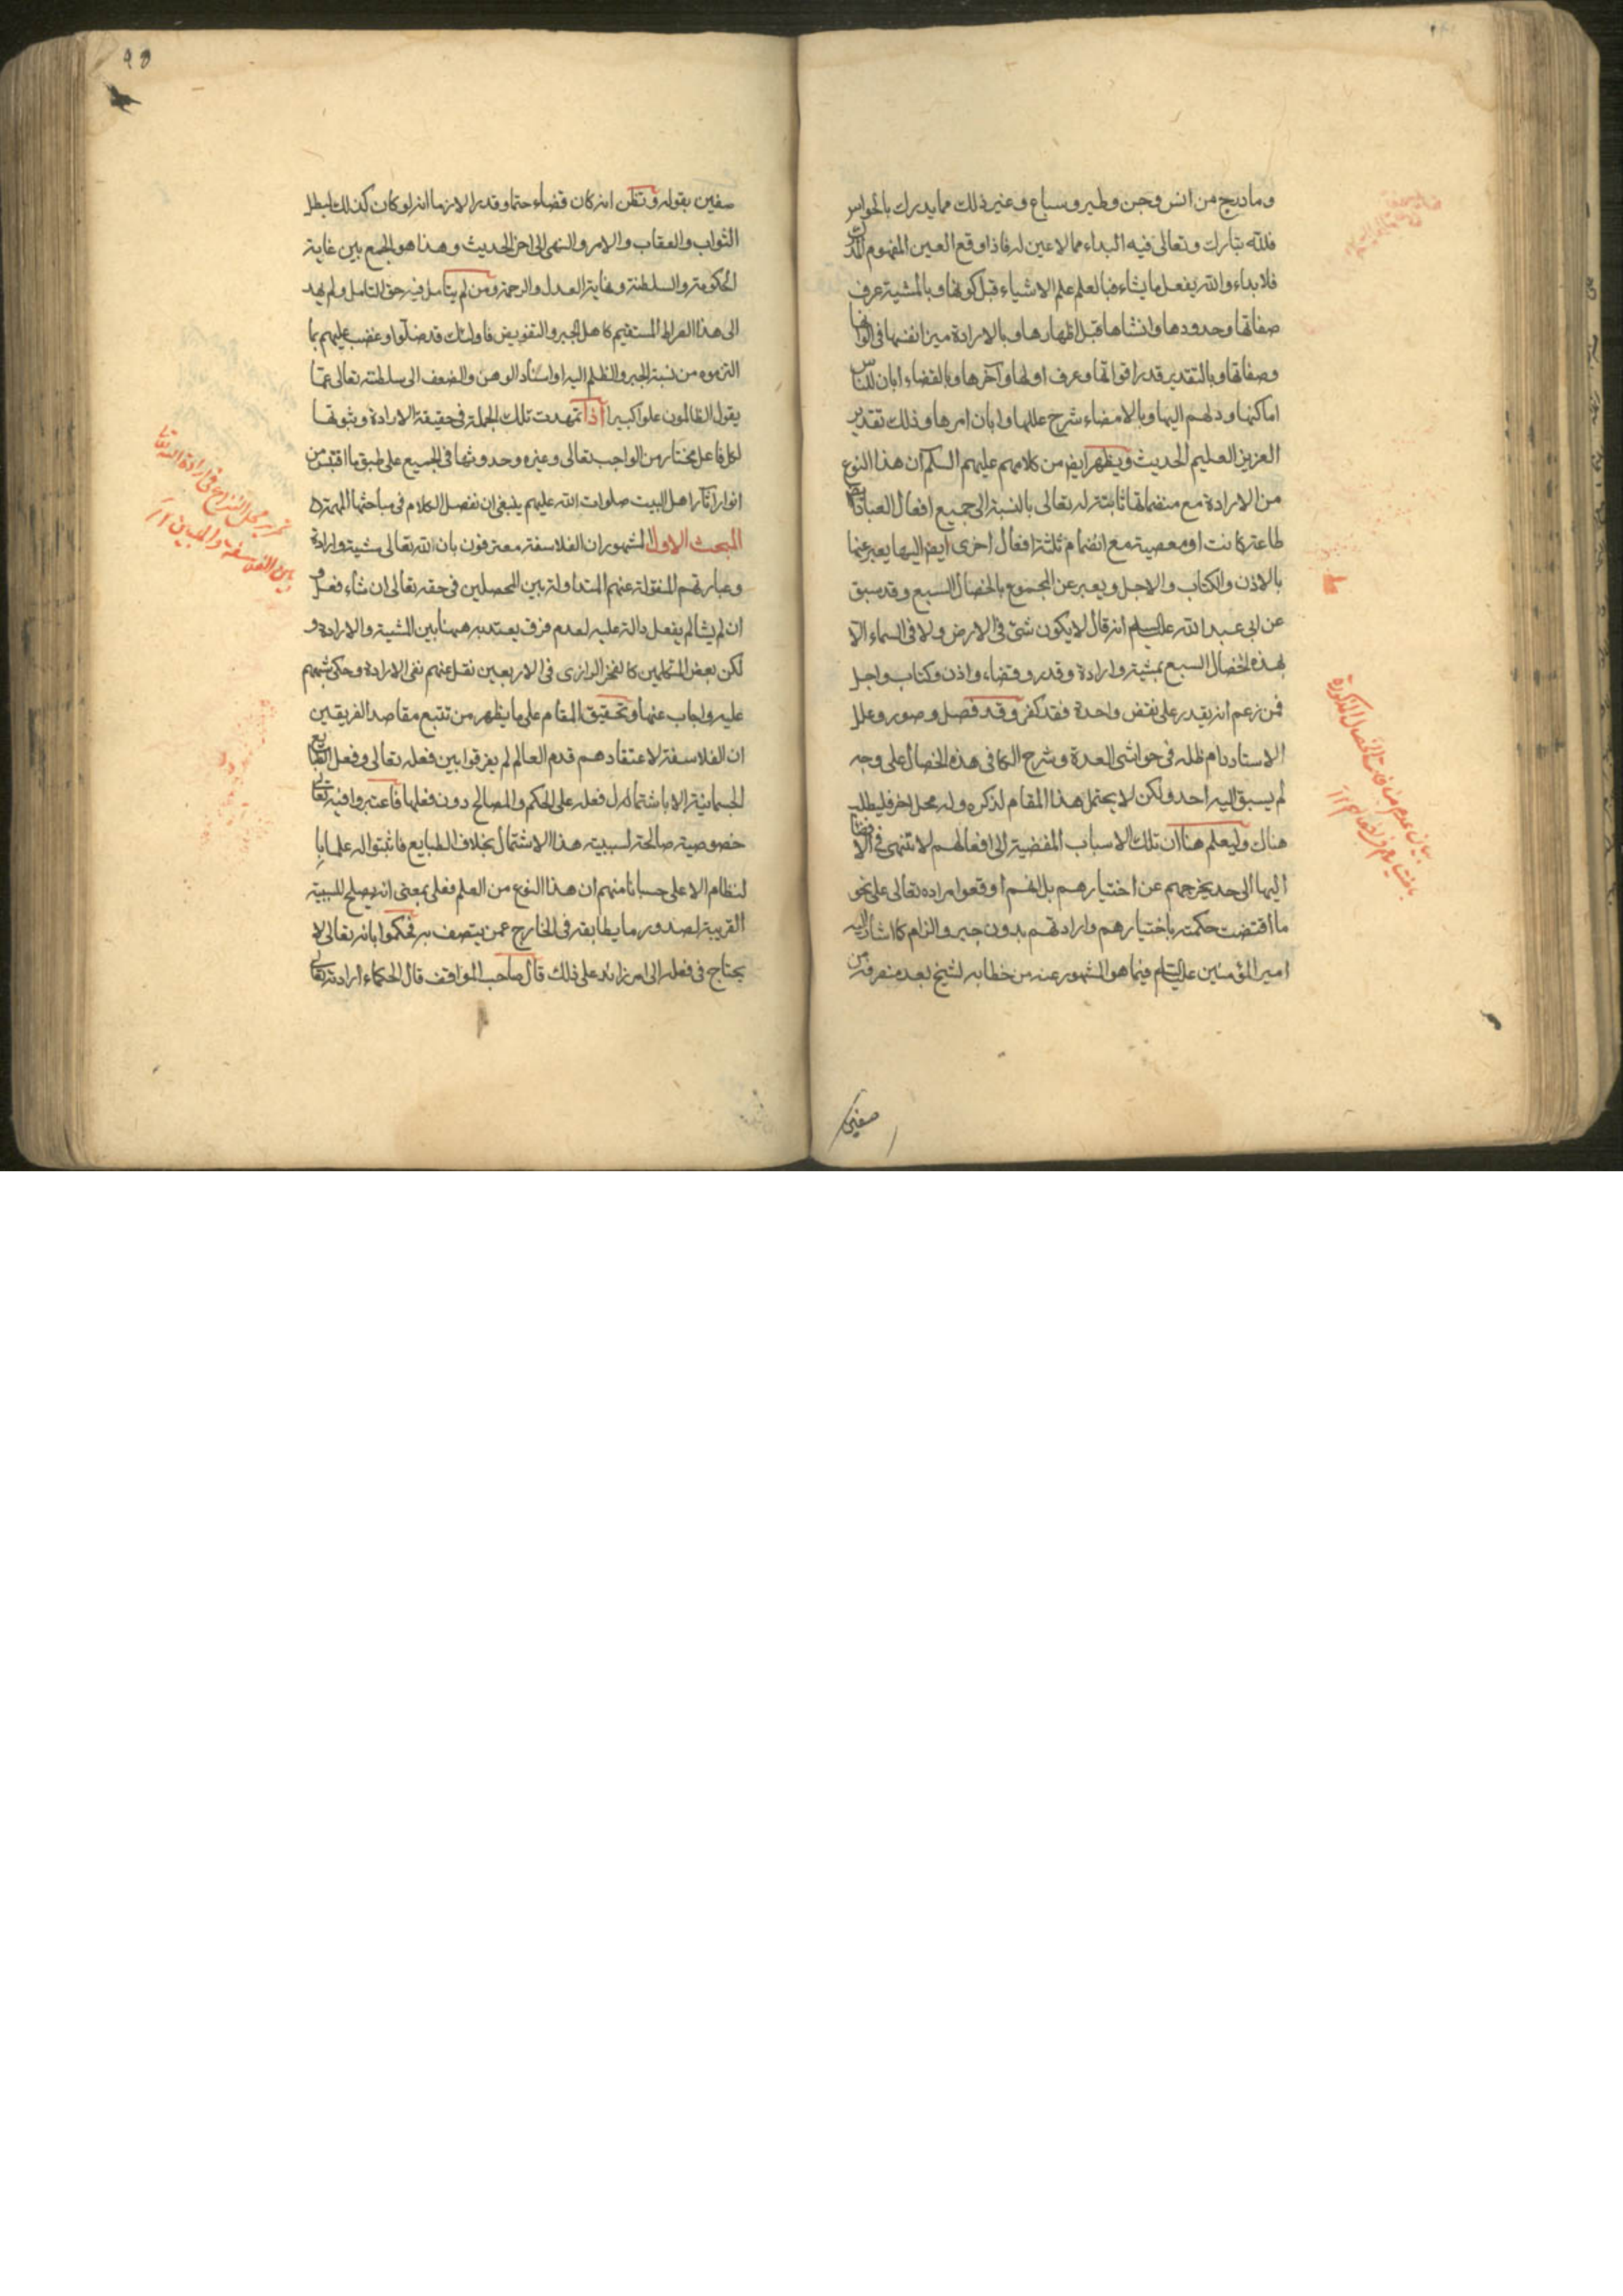 وما دبّ ودرج من انس وجن وطير وسباع وغير ذلك مما يدرك بالحواس
فلله تبارك وتعالى فيه البداء مما لا عين له فاذا وقع العين المفهوم المدرك
فلا بداء والله يفعل ما يشاء فبالعلم علم الاشياء قبل كونها وبالمشية عرف
صفاتها وحدودها وانشاها قبل اظهارها وبالارادة ميز انفسها فى الوانها
وصفاتها وبالتقدير قدر اقواتها وعرف اولها وآخرها وبالقضاء ابان للناس
اماكنها ودلهم اليها وبالامضاء شرح عللها وابان امرها وذلك تقدير
العزيز العليم الحديث ويظهر ايض من كلامهم عليهم السلم ان هذا النوع
من الارادة مع متمماتها ثابتة له تعالى بالنسبة الى جميع افعال العباد
طاعة كانت او معصية مع انضمام ثلثة افعال اخرى ايض اليها يعبر عنها
بالاذن والكتاب والاجل ويعبر عن المجموع بالخصال السبع وقد سبق
عن ابى عبد الله عليه السلم انه قال لا يكون شئ فى الارض ولا فى السماء الا
بهذه الخصال السبع بمشية وارادة وقدر وقضاء واذن وكتاب واجل
فمن زعم انه يقدر على نقض واحدة فقد كفر وقد فصل وصور وعلل
الاستاد دام ظله فى حواشى العدة وشرح الكافى هذه الخصال على وجه
لم يسبق اليه احد ولكن لا يحتمل هذا المقام لذكره وله محل اخر فليطلب
هناك وليعلم هنا ان تلك الاسباب المفضية الى افعالهم لا تنتهى فى الافضاء
اليها الى حد يخرجهم عن اختيارهم بل انهم اوقعوا مراده تعالى على نحو
ما اقتضت حكمته باختيارهم وارادتهم بدون جبر والزام كما اشار اليه
امير المؤمنين عليه السلام فيما هو المشهور عنه من خطابه لشيخ بعد منصرفه من
صفين
بيان عدم منافات الخصال المذكورة
صفين بقوله وتظن انه كان قضاء حتما وقدرا لازما انه لو كان كذلك لبطل
الثواب والعقاب والامر والنهى الى اخر الحديث وهذا هو الجمع بين غاية
الحكومة والسلطنة ونهاية العدل والرحمة ومن لم يتامل فيه حق التامل ولم يهد
الى هذا الصراط المستقيم كاهل الجبر والتفويض فاولئك قد ضلوا وغضب عليهم بما
التزموه من نسبة الجبر والظلم اليه او اسناد الوهن والضعف الى سلطنته تعالى عما
يقول الظالمون علوا كبيرا اذا تمهدت تلك الجملة فى حقيقة الارادة وثبوتها
لكل فاعل مختار من الواجب تعالى وغيره وحدوثها فى الجميع على طبق ما اقتبس من
انوار آثار اهل البيت صلوات الله عليهم ينبغى ان نفصل الكلام فى مباحثها المهمة
المبحث الاول المشهور ان الفلاسفة معترفون بان الله تعالى مشية وارادة
وعبارتهم المنقولة عنهم المتداولة بين المحصلين فى حقه تعالى ان شاء فعل و
ان لم يشا لم يفعل دالة عليه لعدم فرق يعتد به ههنا بين المشية والارادة و
لكن بعض المتكلمين كالفخر الرازى فى الاربعين نقل عنهم نفى الارادة وحكى شبههم
عليه واجاب عنها وتحقيق المقام على ما يظهر من تتبع مقاصد الفريقين
ان الفلاسفة لاعتقادهم قدم العالم لم يفرقوا بين فعله تعالى وفعل الطبايع
الجسمانية الا باشتمال فعله على الحكم والمصالح دون فعلها فاعتبروا فيه تعالى
خصوصية صالحة لسببية هذا الاشتمال بخلاف الطبايع فاثبتوا له علما با
لنظام الاعلى حسبانا منهم ان هذا النوع من العلم فعلى بمعنى انه يصلح للسببية
القريبة لصدور ما يطابقه فى الخارج عمن يتصف به فحكموا بانه تعالى لا
يحتاج فى فعله الى امر زائد على ذلك قال صاحب المواقف قال الحكماء ارادته تعالى
تحرير محل النزاع فى ارادة الله تعالى
بين الفلاسفة والمليين